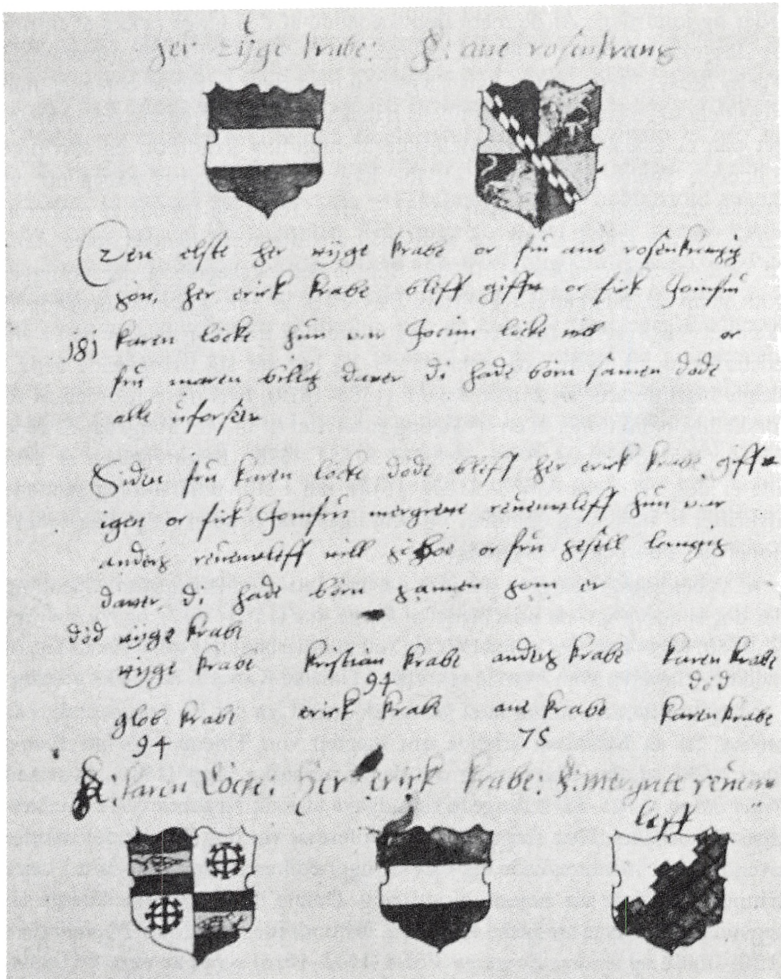 her tÿge krabe: F: ane rosenkrans
Den elste her tÿge krabe oc frú ane rosenkranz
zøn, her erick krabe bleff gifft oc fick Jomfrú
181 karen løcke hún var Jocim løcke oc
frú maren billiz dater di hade børn samen døde
alle úforseen
Siden frú karen løcke døde bleff her erick krabe gifft
igen oc fick Jomfrú mergrete revenvleff hún var
anderz revenvleff oc frú
dater, di hade børn zamen zom er
død tÿge krabe
tÿge krabe kristian krabe anderz krabe karen krabe
94 død
glob krabe erick krabe ane krabe karen krabe
94 75
F: karin Løcke: Her erick krabe: F: mergrete reven
leff